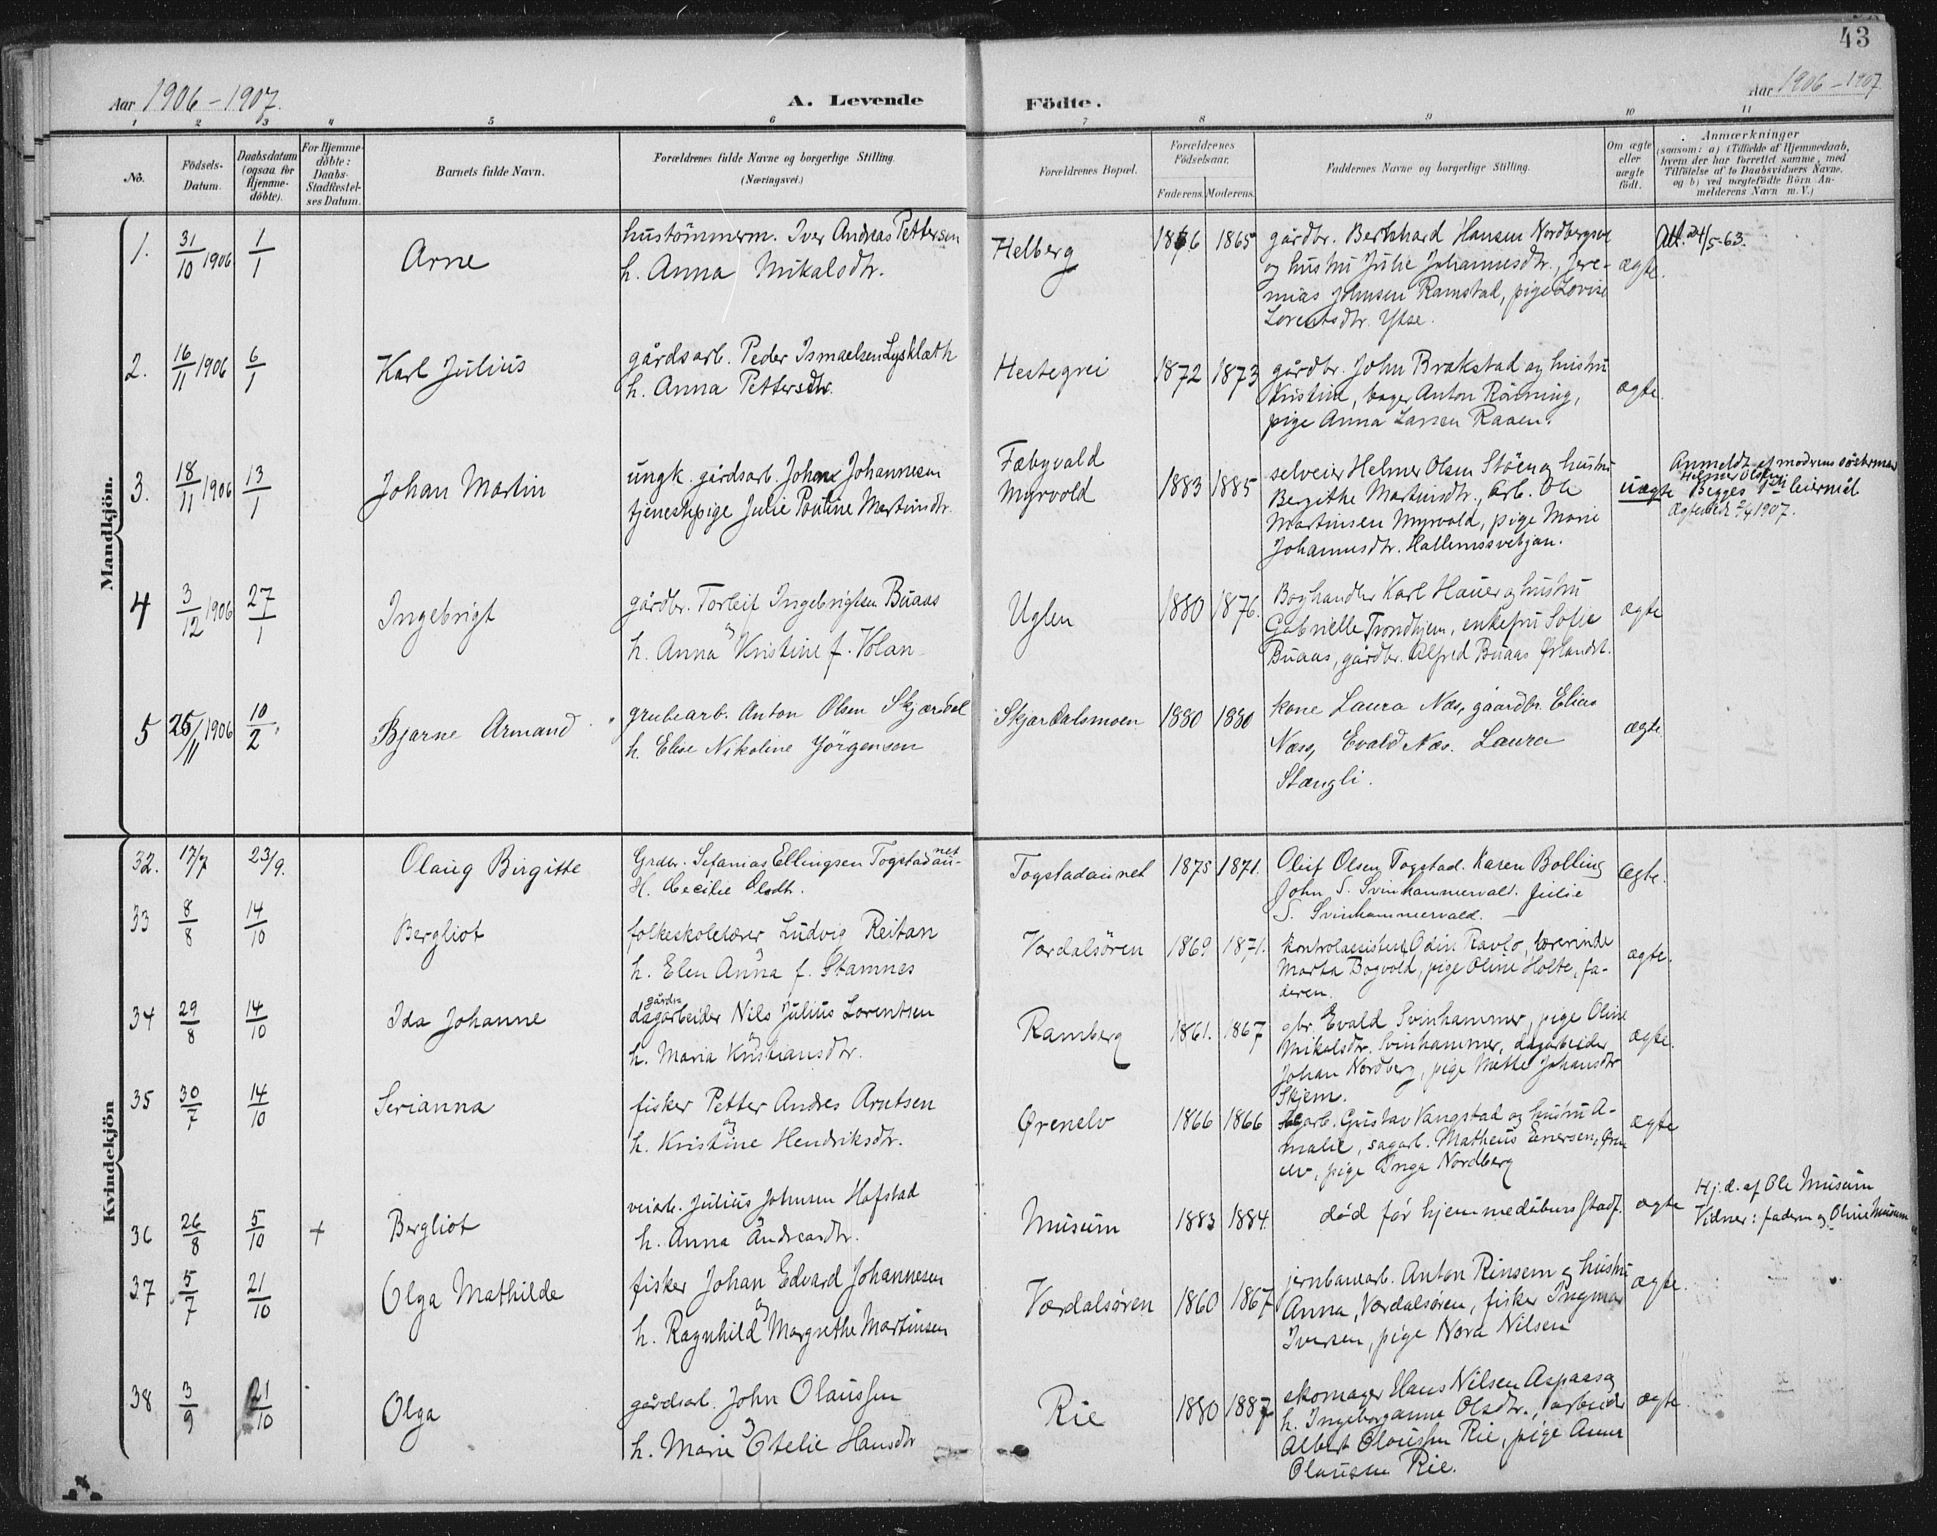 43
Aar 1906-1907. A. Levende Födte. Aar 1906-1907.
1 2 3 4 5 6 7 8 9 10 11
No. Födsels-Datum. Daabsdatum (ogsaa for Hjemme-döbte). For Hjemme-döbte: Daabs-Stadfæstel-ses Datum. Barnets fulde Navn. Forældrenes fulde Navne og borgerlige Stilling. (Næringsvei.) Forældrenes Bopæl. Forældrenes Födselsaar. Faderens. Moderens. Faddernes Navne og borgerlige Stilling. Om ægte eller uægte født. Anmærkninger (saasom: a) i Tilfælde af Hjemmedaab, hvem der har forrettet samme, med Tilföielse af to Daabsvidners Navne, og b) ved uægtefödte Börn An-melderens Navn m. V.)
Mandkjön.
1. 31/10 1906 1/1 Arne hustömmerm. Iver Andreas Pettersen
h. Anna Mikalsdtr. Helberg 1866 1865 gårdbr. Bernhard Hansen
og hustru Julie Johannesdtr., Jere-
mias Johnsen Ramstad, pige Lovise
Lorentsdtr. Ytse. ægte. Att. 24/5-63.
2. 16/11 1906 6/1 Karl Julius gårdsarb. Peder Ismaelsen Lysklæth
h. Anna Pettersdtr. Hestegrei 1872 1873 gårdbr. John Brakstad og hustru
Kristine, bager Anton Rönning,
pige Anna Larsen Raaen. ægte.
3. 18/11 1906 13/1 Johan Martin ungk. gårdsarb. Johan Johannesen
tjenestepige Julie Pauline Martinsdtr. Fæbyvald
Myrvold 1883 1885 selveier Helmer Olsen Stöen og hustru
Bergithe Martinsdtr., arb. Ole
Martinsen Myrvold, pige Marie
Johannesdtr. uægte Anmeldt af modrens söstermand
Helmer Olsen
Begges 1ste leiermål
Ægteviede 2/4 1907.
4 3/12 1906 27/1 Ingebrigt gårdbr. Torleif Ingebrigtsen Buaas
h. Anna Kristine f. Volan Uglen 1880 1876. Boghandler Karl Hauer og hustru
Gabrielle Trondhjem, enkefru Sofie
Buaas, gårdbr. Alfred Buaas Ørlandet. ægte
5 25/11 1906 10/2 Bjarne Armand grubearb. Anton Olsen Skjærdal
h. Elise Nikoline Jörgensen Skjærdalsmoen 1880 1880 kone Laura Næs, gaardbr. Elias
Næs, Evald Næs. Laura
Stængli. ægte
Kvindekjön
32. 17/7 23/9. Olaug Birgitte Grdbr. Sefanias Ellingsen Togstadaunet
H. Cecilie Olsdtr. Togstadaunet 1875 1871. Oluf Olsen Togstad. Karen Bolling
John S. Svinhammervald. Julie
S. Svinhammervald. ægte.
33 8/8 14/10 Bergliot folkeskolelærer Ludvig Reitan
h. Elen Anna f. Stamnes Værdalsören 1869 1871. kontrolassistent Odin Ravlo, lærerinde
Marta Bogvold, pige Oline Holte, fa-
deren. ægte.
34 29/8 14/10 Ida Johanne gårds
dagarbeider Nils Julius Lorentsen
h. Maria Kristiansdtr. Ramberg 1861. 1867 gbr. Evald Svinhammer, pige Oline
Mikalsdtr. Svinhammer, dagarbeider
Johan Nordberg, pige Mette Johansdtr
Skjem. ægte.
35 30/7 14/10 Serianna fisker Petter Andres Arntsen
h. Kristine Hendriksdtr. Ørenelv 1866 1866 sagarb. Gustav Vangstad og hustru A-
malie, sagarb. Matheus Enersen, Øren-
elv, pige Inga Nordberg ægte
36 26/8 5/10 + Bergliot veiarb. Julius Johnsen Hofstad
h. Anna Andreasdtr. Musum 1883 1884. död för hjemmedåbens stadf. ægte Hj. d. af Ole Musum
Vidner: faderen og Oline Musum
37 5/7 21/10 Olga Mathilde fisker Johan Edvard Johannesen
h. Ragnhild Margrethe Martinsen Værdalsören 1860 1867 jernbanearb. Anton Rinsem og hustru
Anna, Værdalsören, fisker Ingmar
Iversen, pige Nora Nilsen ægte.
38 3/9 21/10 Olga gårdsarb. John Olaussen
h. Marie Otelie Hansdtr Rie 1880 1887 skomager Hans Nilsen Aspaas og
h. Ingeborganna Olsdtr., arbeider
Albert Olaussen Rie, pige Anna
Olaussen Rie. ægte.